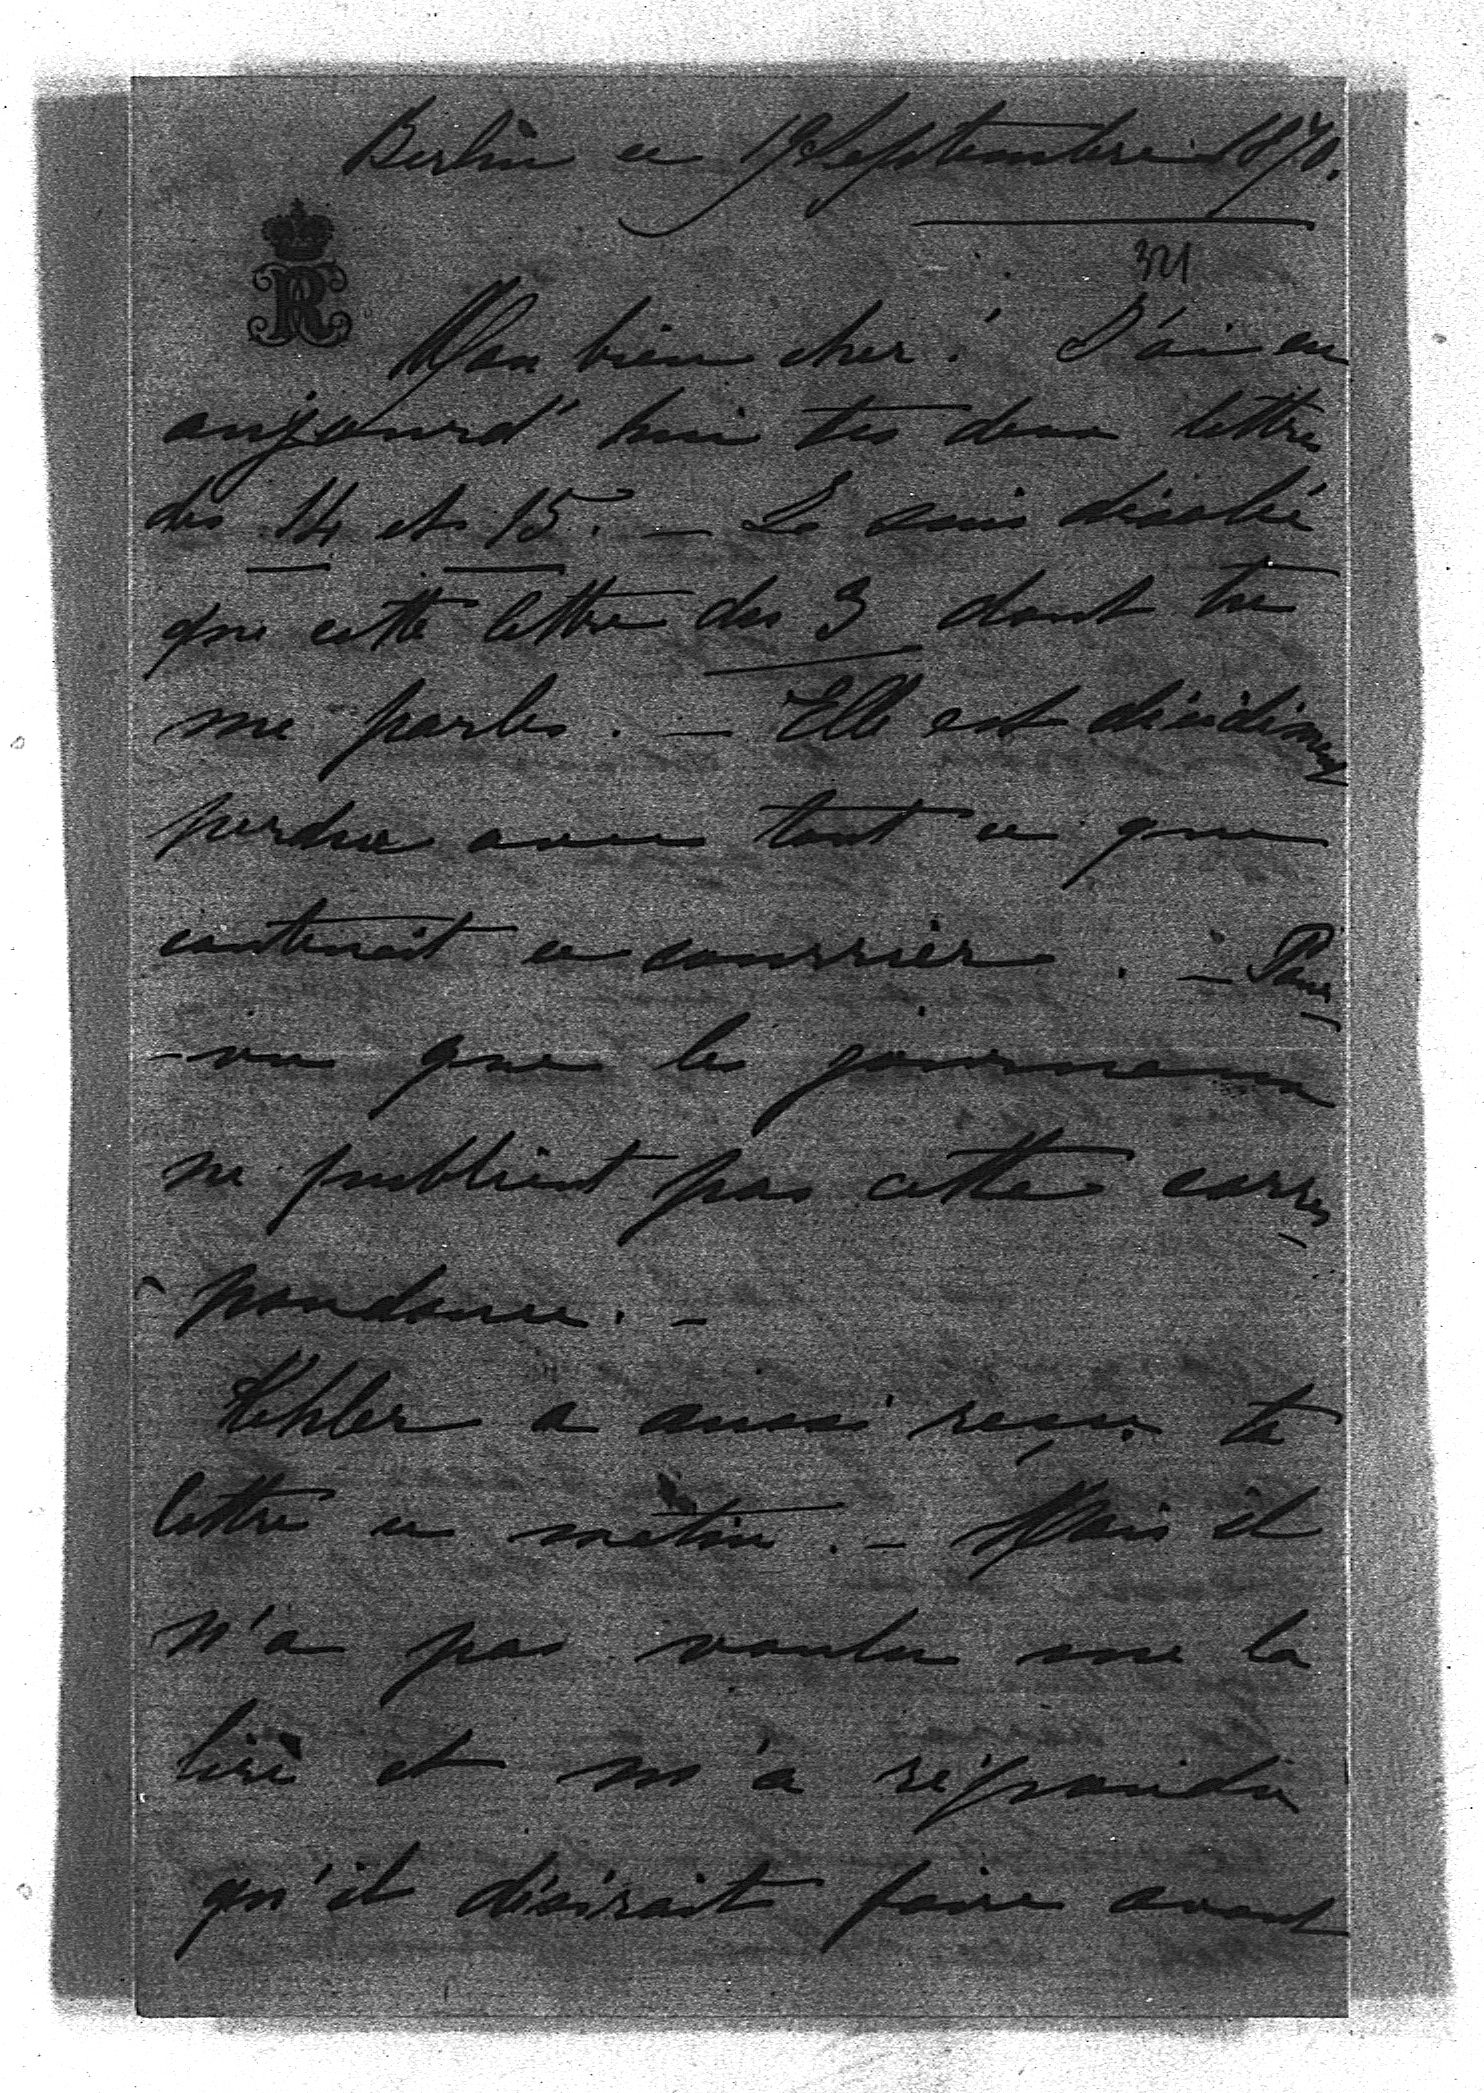 Berlin ce 19 Septembre 1870.
321
R
Mon bien cher! J'ai eu
aujourd'hui tes deux lettres
des 14 et 15. — Je suis désolé
que cette lettre des 3 dont tu
me parles. — Elle est décidément
perdue avec tout ce que
contenait ce courrier. — Pour-
-vu que les journaux
ne publient pas cette corres-
-pondance. —
Kehler a aussi reçu ta
lettre ce matin. — Mais il
n'a pas voulu me la
lire et m'a répondu
qu'il désirait faire avant